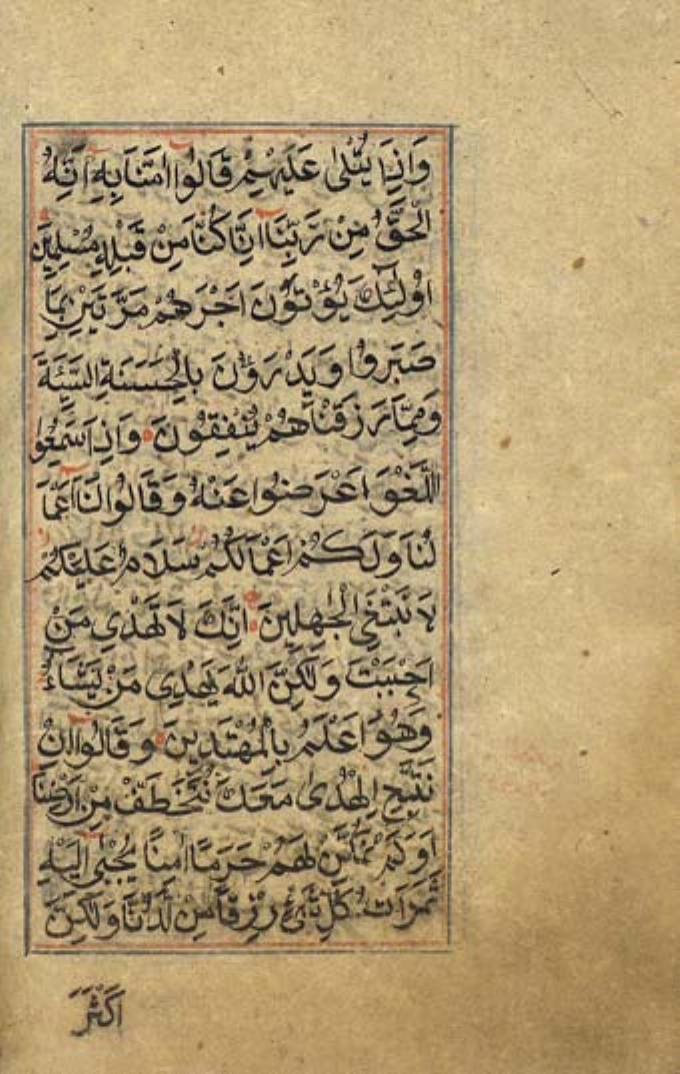 وَاِذَا يُتْلٰى عَلَيْهِمْ قَالُوا اٰمَنَّا بِهِ اِنَّهُ
الْحَقُّ مِنْ رَبِّنَا اِنَّا كُنَّا مِنْ قَبْلِهِ مُسْلِمِينَ
اُولٰئِكَ يُؤْتَوْنَ اَجْرَهُمْ مَرَّتَيْنِ بِمَا
صَبَرُوا وَيَدْرَؤُنَ بِالْحَسَنَةِ السَّيِّئَةَ
وَمِمَّا رَزَقْنَاهُمْ يُنْفِقُونَ وَاِذَا سَمِعُوا
اللَّغْوَ اَعْرَضُوا عَنْهُ وَقَالُوا لَنَا اَعْمَا
لُنَا وَلَكُمْ اَعْمَالُكُمْ سَلَامٌ عَلَيْكُمْ
لَا نَبْتَغِي الْجٰهِلِينَ اِنَّكَ لَا تَهْدِي مَنْ
اَحْبَبْتَ وَلٰكِنَّ اللّٰهَ يَهْدِي مَنْ يَشَاءُ
وَهُوَ اَعْلَمُ بِالْمُهْتَدِينَ وَقَالُوا اِنْ
نَتَّبِعِ الْهُدٰى مَعَكَ نُتَخَطَّفْ مِنْ اَرْضِنَا
اَوَلَمْ نُمَكِّنْ لَهُمْ حَرَمًا اٰمِنًا يُجْبٰى اِلَيْهِ
ثَمَرَاتُ كُلِّ شَيْءٍ رِزْقًا مِنْ لَدُنَّا وَلٰكِنَّ
اَكْثَرَ